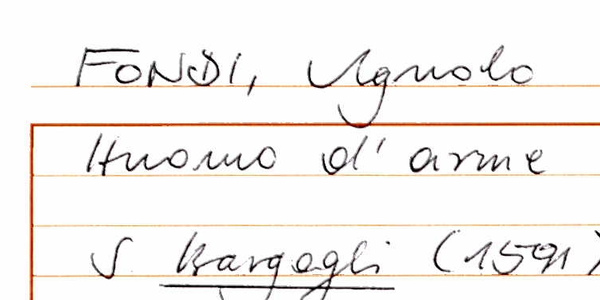 FONDI, Agnolo
Huomo d'arme
S Bargagli (1591)